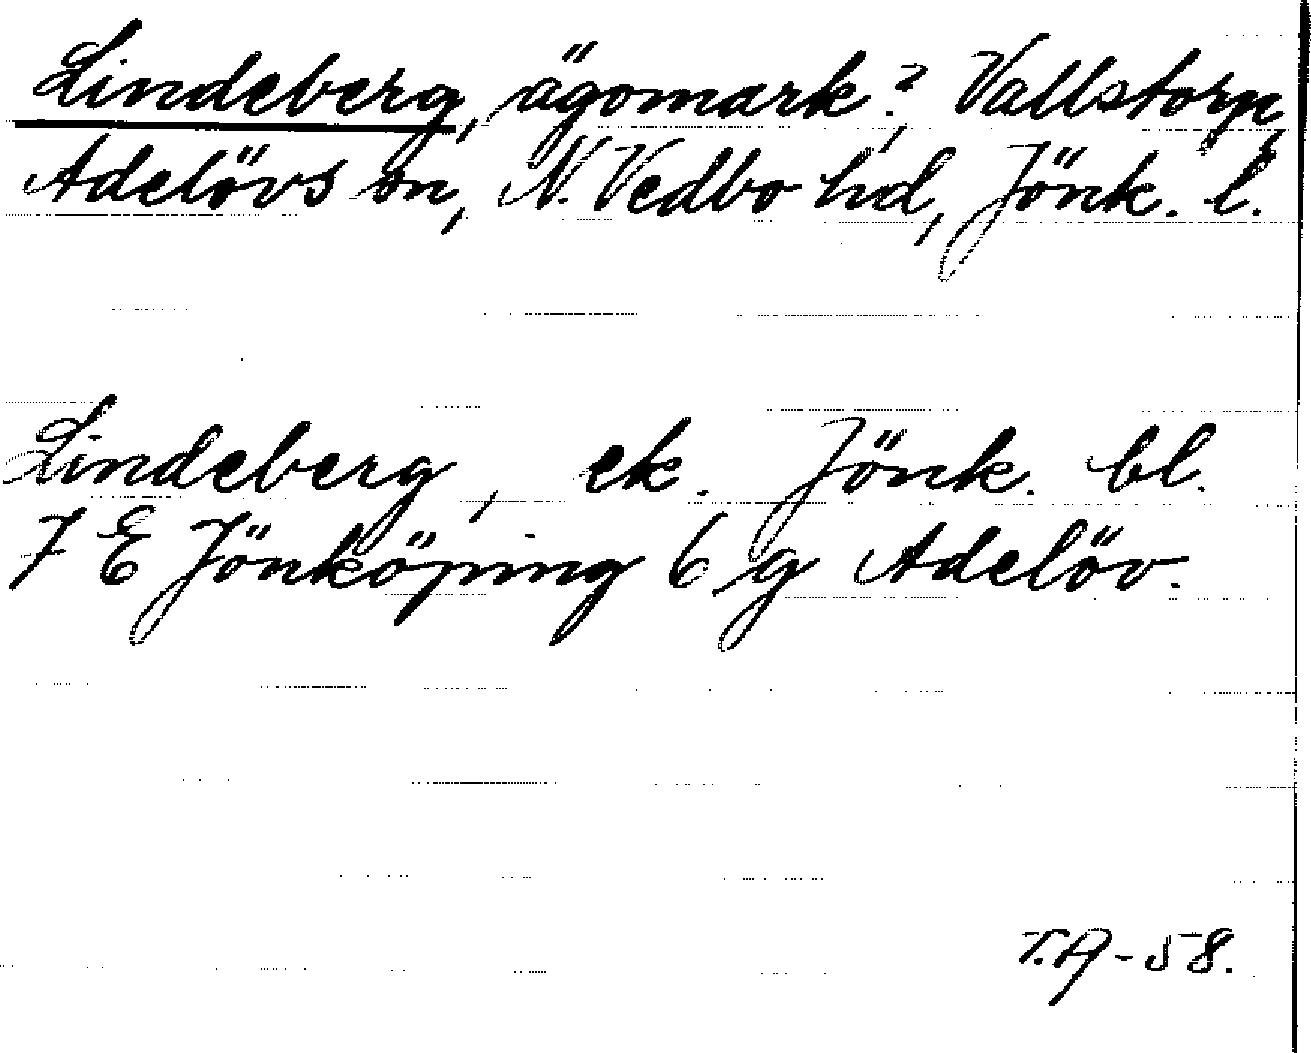 Lindeberg, ägomark?, Vallstorp,
Adelövs sn, N. Vedbo hd, Jönk. l.
Lindeberg, ek. Jönk. bl.
7 E Jönköping 6 g Adelöv.
T.A-58.